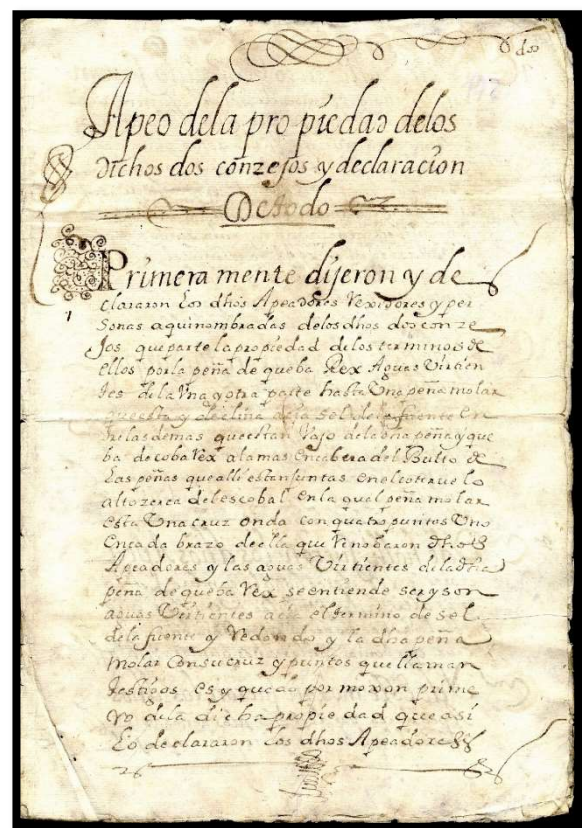 dos
Apeo dela propiedad delos
dichos dos conzejos y declaracion
De todo
Primera mente dijeron y de
1
clararon Los dhos Apeadores Rexidores y per
sonas aqui nombradas delos dhos dos conze
Jos que parte la propiedad delos terminos de
ellos por la peña de queba Rex Aguas Virtien
tes de la Una y otra parte hasta Una peña molar
questa y declina a la sel dela fuente en
tre las demas questan Vajo dela dha peña y que
ba de coba Rex a la mas en cabera del de
Las peñas que alli estan juntas en el lo
alto zerca del escobal en la qual peña molar
esta Una cruz onda con quatro puntos Uno
en cada brazo de ella que Renobaron dhos
Apeadores y las aguas Virtientes de la dha
peña de queba Rex se entiende ser y son
aguas Virtientes acia el termino de sel
de la fuente y Redondo y la dha peña
molar con su cruz y puntos que llaman
testigos es y queda por moxon prime
ro de la dicha propiedad que asi
Lo declararon los dhos Apeadores